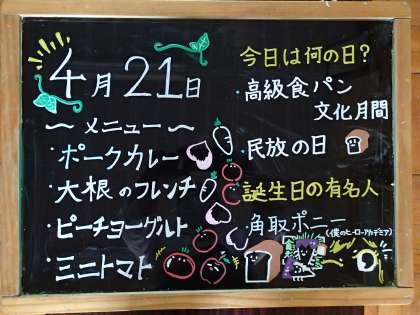 4月21日
〜メニュー〜
・ポークカレー
・大根のフレンチ
・ピーチヨーグルト
・ミニトマト
今日は何の日?
・高級食パン
文化月間
・民放の日
誕生日の有名人
・角取ポニー
(僕のヒーローアカデミア)